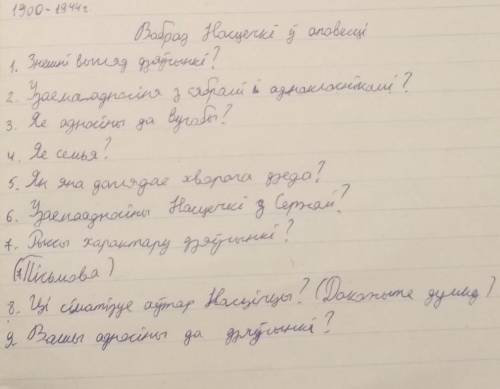 1900-1944г
Вобраз Насцечкі ў аповесці
1. Знешні выгляд дзяўчынкі?
2. Узаемаадносіня з сябрамі і аднакласнікамі?
3. Яе адносіны да вучобы?
4. Яе семья?
5. Як яна даглядае хворага дзеда?
6. Узаемаадносіны Насцечкі з Сержам?
7. Рысы характару дзяўчынкі?
(Пісьмова)
8. Ці сімпатізуе аўтар Насцечцы? (Дакажыте думку)
9. Вашы адносіны да дзяўчынкі?